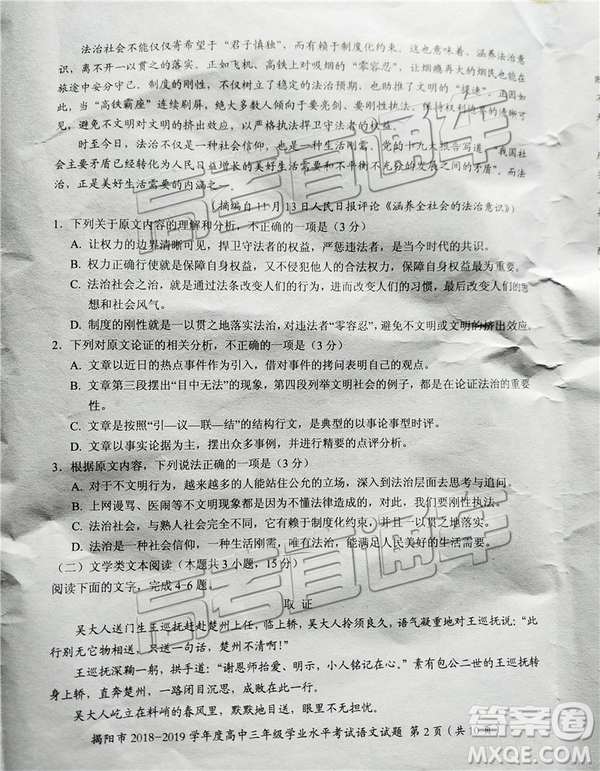 法治社会不能仅仅寄希望于“君子慎独”，而有赖于制度化约束。涵养法治意
识，离不开一以贯之的落实。正如飞机、高铁上实施烟的“零容忍”，让烟瘾再大的烟民也能在
旅途中安分守己。制度的刚性，不仅树立了稳定的法治预期，也助推了文明的“提速”。因此，
当“高铁霸座”连续刷屏，绝大多数人倾向于要亮剑、要执法。保持权利边界的清晰可
见，避免不文明的挤出效应，以严格执法捍卫守法者的权益。
时至今日，法治不仅是一种社会信仰，也是一种生活方式。党的十九大报告写道，“我国社
会主要矛盾已经转化为人民日益增长的美好生活需要和不平衡不充分的发展之间的矛盾”，而法
治，正是美好生活需要的内涵之一。
（摘编自11月13日人民日报评论《涵养全社会的法治意识》）
1．下列关于原文内容的理解和分析，不正确的一项是（3分）
A．让权力的边界清晰可见，捍卫守法者的权益，严惩违法者，是当今时代的共识。
B．权力文明规范就是保障自身权益，又不侵犯他人权益，其前提是保障自身权益。
C．法治社会的形成，主要是通过法条改变人们的行为，进而改变人们的习惯，最后改变思想
和社会风气。
D．制度的刚性就是一以贯之地落实法治，对违法者“零容忍”，避免不文明或文明的挤出效应。
2．下列对原文论证的相关分析，不正确的一项是（3分）
A．文章以近日的热点事件作为引入，借对事件的拷问表明自己的观点。
B．文章第三段摆出“目中无法”的现象，第四段列举文明社会的表现，都是在论证法治的重要
性。
C．文章是按照“引—议—联—结”的结构行文，是典型的以事论事型时评。
D．文章以事实论据为主，摆出大众案例，并进行精要的点评分析。
3．根据原文内容，下列说法正确的一项是（3分）
A．对于不文明行为，越来越多的人能站住公允的立场，深入到法治层面去思考与追问。
B．上网谩骂、医闹等不文明现象都是因为人们不懂法律造成的，对此，我们要刚性执法。
C．法治社会，与熟人社会完全不同，它有赖于制度化约束，尤其需要一以贯之地落实。
D．法治是一种社会信仰，一种生活方式，能满足人民美好生活的需要。
（二）文学类文本阅读（本题共3小题，15分）
阅读下面的文字，完成4-6题。
取 证
吴大人送门生王巡抚赴赴楚州上任，临上轿，吴大人拎须良久，语气凝重地对王巡抚说：“此
行别无它物相送，只送一句话：楚州不简单啊！”
王巡抚深鞠一躬，拱手道：“谢恩师抬爱、明示，小人铭记在心。”素有包公二世的王巡抚转
身上轿，直奔楚州，一路闭目沉思，神情凝重。
吴大人屹立在原地久久不肯离去。
揭阳市 2018-2019 学年度高中三年级学业水平考试语文试题 第 2 页（共 10 页
高考直通车
高考直通车
答案圈
MXQE.COM